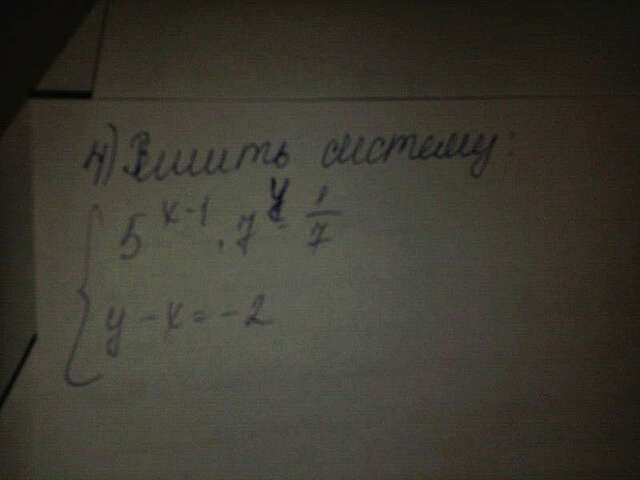 4) Решить систему:
5^{x-1} · 7^{y} = \frac{1}{7}
y - x = -2